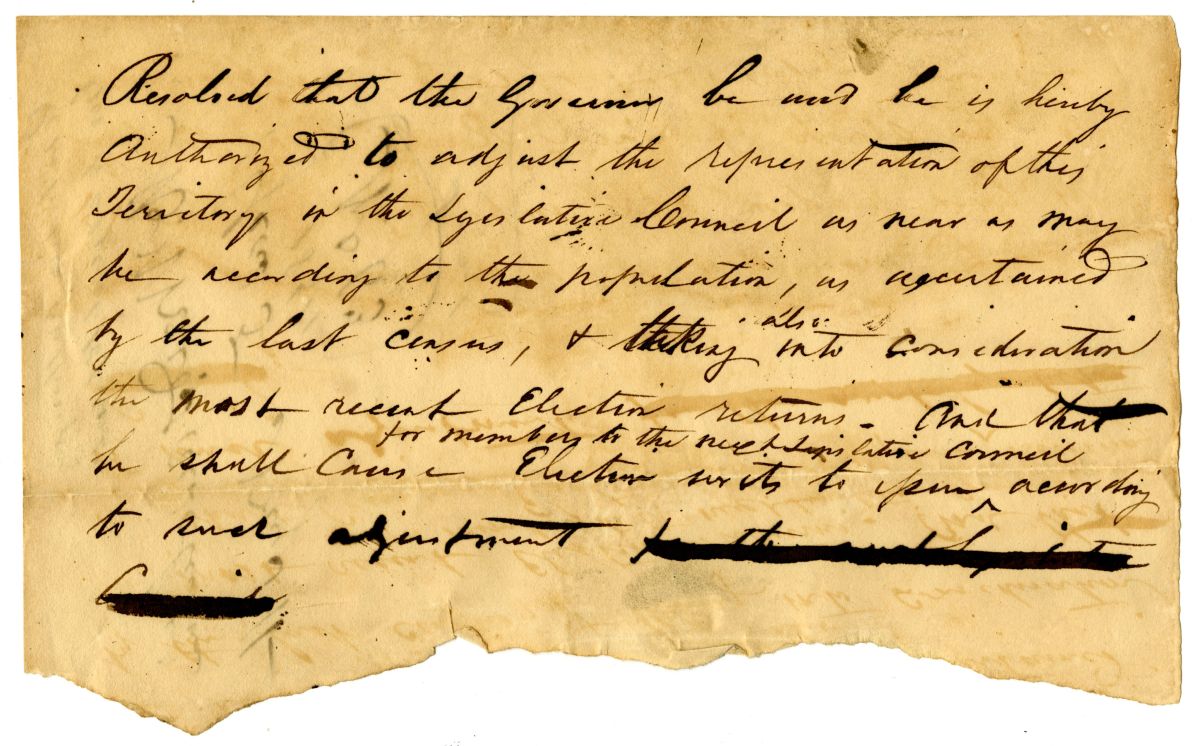 Resolved that the Governor be and he is hereby
Authorized to adjust the representation of this
Territory in the Legislative Council as near as may
be according to the population, as ascertained
by the last census, & taking also into consideration
the most recent Election returns. And that
for members to the next Legislative Council
he shall Cause Election writs to issue ^ according
to such adjustment for the next Legislative
Council